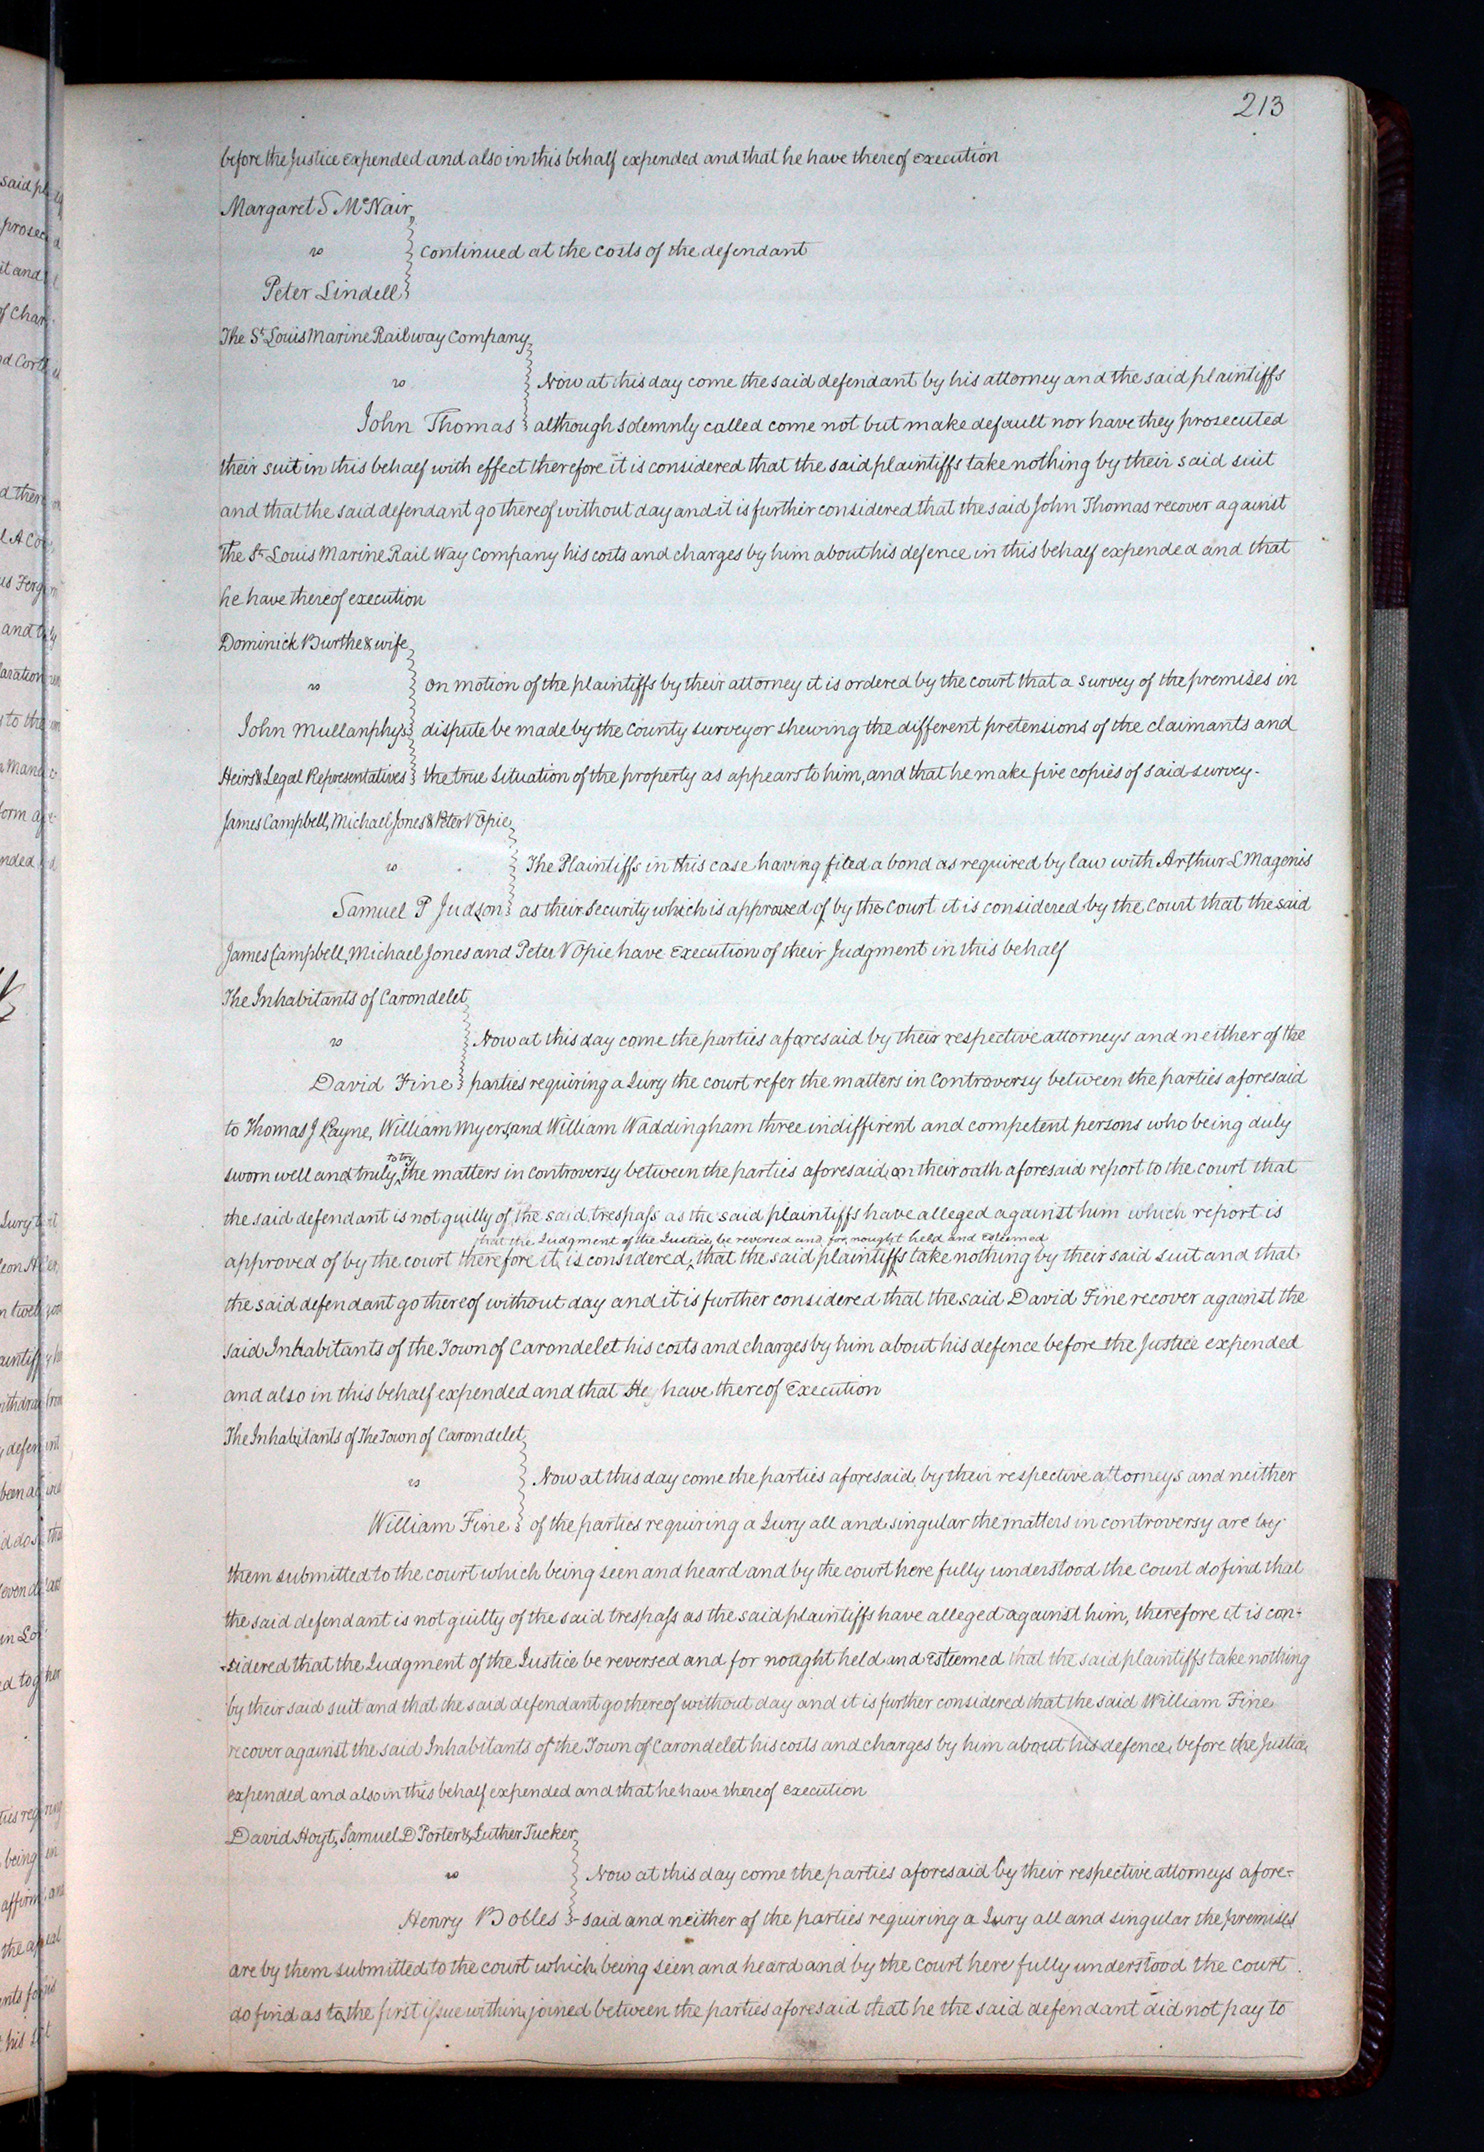 213
before the Justice expended and also in this behalf expended and that he have thereof execution
Margaret S McNair
vs
Continued at the costs of the defendant
Peter Lindell
The St Louis Marine Railway Company
vs
Now at this day come the said defendant by his attorney and the said plaintiffs
John Thomas although solemnly called come not but make default nor have they prosecuted
their suit in this behalf with effect therefore it is considered that the said plaintiffs take nothing by their said suit
and that the said defendant go thereof without day and it is further considered that the said John Thomas recover against
the St Louis Marine Rail Way Company his costs and charges by him about his defence in this behalf expended and that
he have thereof execution
Dominick Burthe & wife
vs
On motion of the plaintiffs by their attorney it is ordered by the court that a survey of the premises in
John Mullanphys dispute be made by the County surveyor shewing the different pretensions of the claimants and
Heirs & Legal Representatives the true situation of the property as appears to him, and that he make five copies of said survey.
James Campbell, Michael Jones & Peter V Opie
vs
The Plaintiffs in this case having filed a bond as required by law with Arthur L Magenis
Samuel P Judson as their Security which is approved of by the Court it is considered by the Court that the said
James Campbell, Michael Jones and Peter V Opie have Execution of their Judgment in this behalf
The Inhabitants of Carondelet
vs
Now at this day come the parties aforesaid by their respective attorneys and neither of the
David Fine parties requiring a Jury the court refer the matters in controversy between the parties aforesaid
to Thomas J Payne, William Myers, and William Waddingham three indiffirent and competent persons who being duly
sworn well and truly to try the matters in controversy between the parties aforesaid on their oath aforesaid report to the court that
the said defendant is not guilty of the said trespass as the said plaintiffs have alleged against him which report is
that the Judgment of the Justice be reversed and for nought held and Esteemed
approved of by the court therefore it is considered that the said plaintiffs take nothing by their said suit and that
the said defendant go thereof without day and it is further considered that the said David Fine recover against the
said Inhabitants of the Town of Carondelet his costs and charges by him about his defence before the Justice expended
and also in this behalf expended and that He have thereof Execution
The Inhabitants of The Town of Carondelet
vs
Now at this day come the parties aforesaid by their respective attorneys and neither
William Fine of the parties requiring a Jury all and singular the matters in controversy are by
them submitted to the court which being seen and heard and by the court here fully understood the Court do find that
the said defendant is not guilty of the said trespass as the said plaintiffs have alleged against him, therefore it is con-
-sidered that the Judgment of the Justice be reversed and for nought held and Esteemed that the said plaintiffs take nothing
by their said suit and that the said defendant go thereof without day and it is further considered that the said William Fine
recover against the said Inhabitants of the Town of Carondelet his costs and charges by him about his defence before the Justice
expended and also in this behalf expended and that he have thereof execution
David Hoyt, Samuel D Porter & Luther Tucker
vs
Now at this day come the parties aforesaid by their respective attorneys afore-
Henry Bolles -said and neither of the parties requiring a Jury all and singular the premises
are by them submitted to the court which being seen and heard and by the Court here fully understood the court
do find as to the first issue within joined between the parties aforesaid that he the said defendant did not pay to